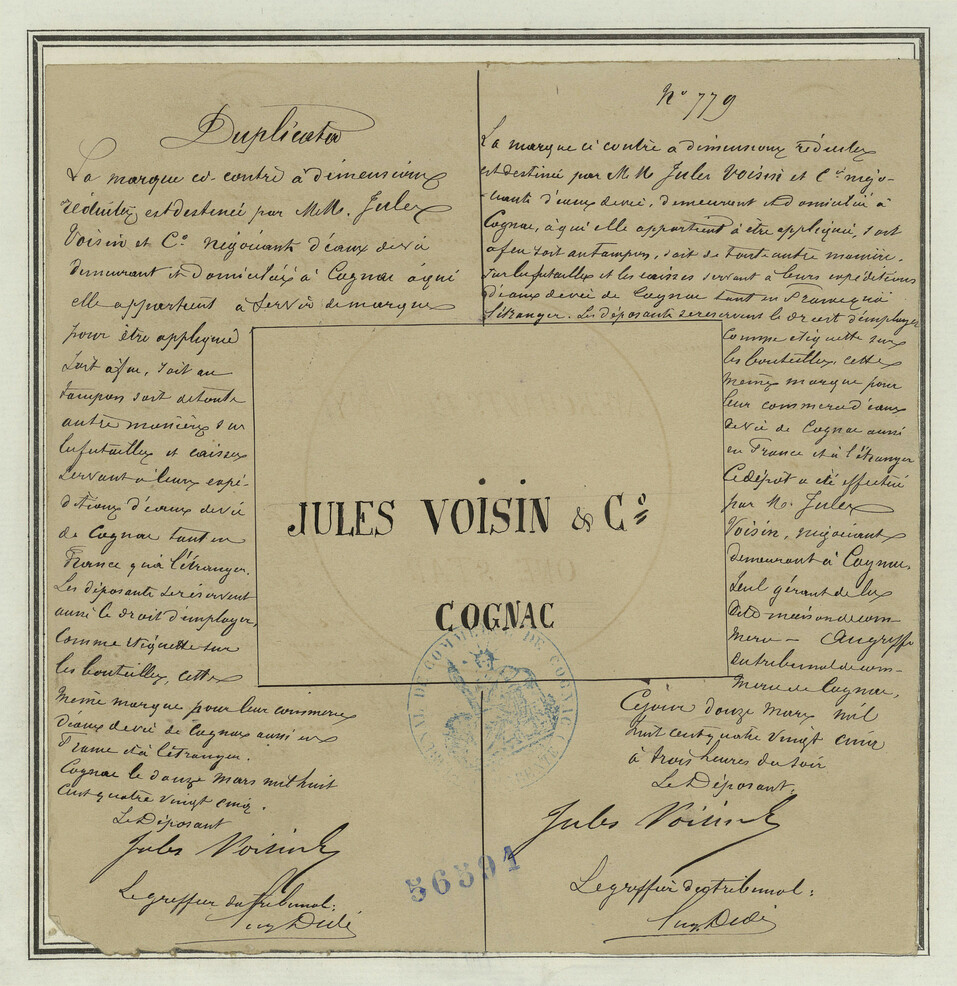 Duplicata
La marque ci-contre à dimensions
réduites est destinée par M.M. Jules
Voisin et Cº négociants d'eaux de vie
demeurant et domiciliés à Cognac à qui
elle appartient à servir de marque
pour être appliquée
soit à feu, soit au
tampon soit de toute
autre manière sur
les futailles et caisses
servant à leurs expé-
ditions d'eaux de vie
de Cognac tant en
France qu'à l'étranger.
Les déposants se réservent
aussi le droit d'employer,
comme étiquette sur
les bouteilles, cette
même marque pour leur commerce
d'eaux de vie de Cognac aussi en
France et à l'étranger.
Cognac le douze mars mil huit
cent quatre vingt cinq.
Le Déposant
Jules Voisin
Le greffier du tribunal:
Dédé
Nº 779
La marque ci contre à dimensions réduites
est destinée par M M Jules Voisin et Cie négo-
-ciants d'eaux de vie, demeurant et domiciliés à
Cognac, à qui elle appartient à être appliquée, soit
à feu soit au tampon, soit de toute autre manière,
sur les futailles et les caisses servant à leurs expéditions
d'eaux de vie de Cognac tant en France qu'à
l'étranger. Les déposants se réservent le droit d'employer
comme étiquette sur
les bouteilles, cette
même marque pour
leur commerce d'eaux
de vie de Cognac aussi
en France et à l'étranger
Ce dépôt a été effectué
par M. Jules
Voisin, négociant
demeurant à Cognac,
seul gérant de la
dite maison de com-
merce - Au greffe
du tribunal de com-
merce de Cognac,
Ce jour douze mars mil
huit cent quatre vingt cinq
à trois heures du soir
Le Déposant:
Jules Voisin
Le greffier du tribunal:
Dédé
JULES VOISIN & Cº
COGNAC
TRIBUNAL DE COMMERCE DE COGNAC
56594